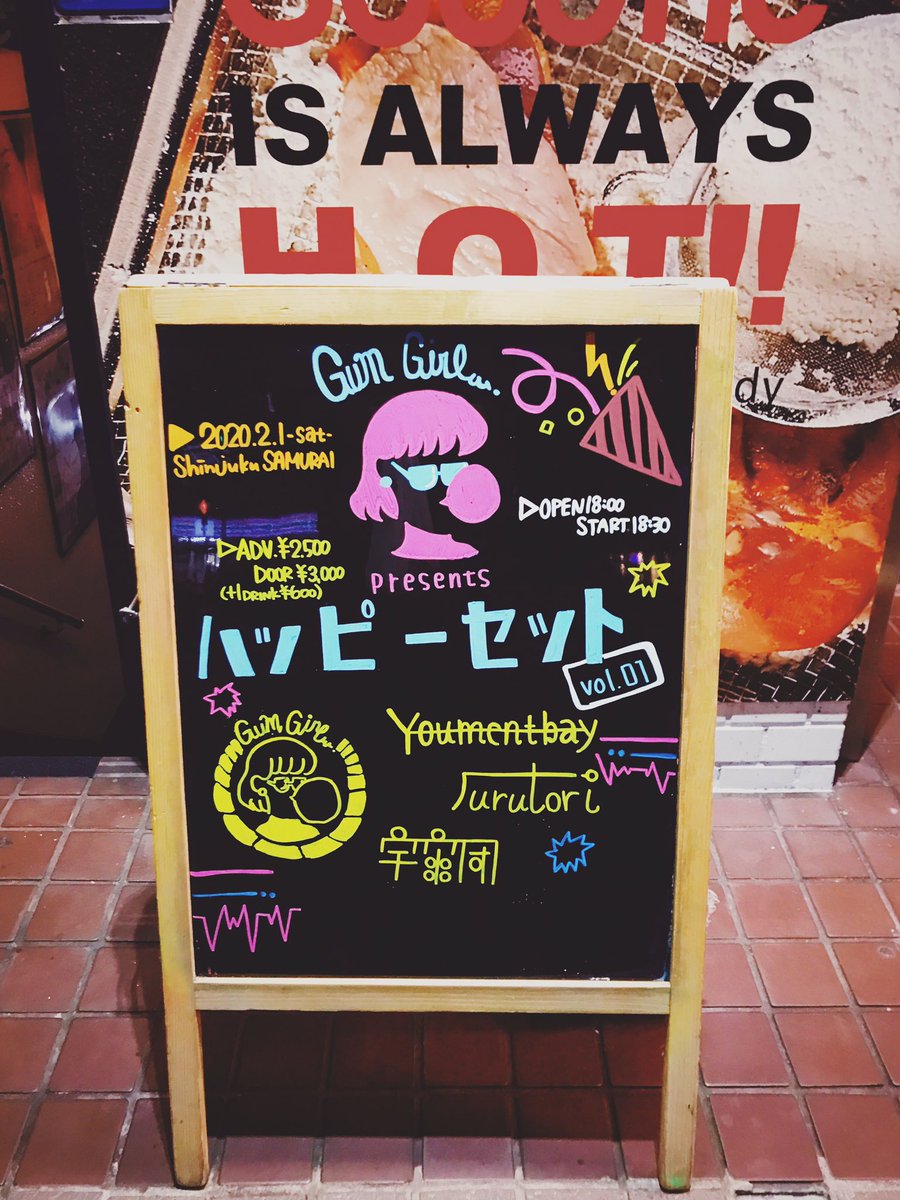 IS ALWAYS
HOT!!
dy
Gum Girl...
▶2020.2.1-sat-
Shinjuku SAMURAI
▷OPEN18:00
START18:30
▷ADV.¥2,500
DOOR¥3,000
(+1DRINK¥600)
presents
ハッピーセット
vol.01
Gum Girl...
Youmentbay
Turutori